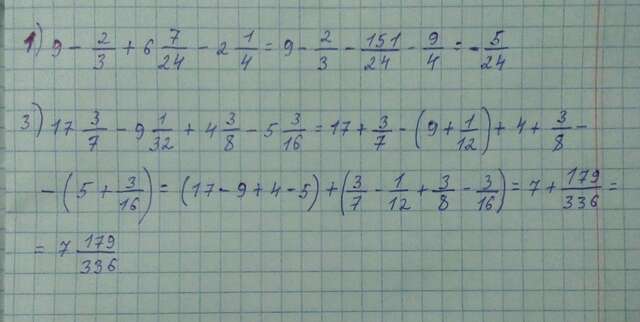 1) 9 - 2/3 + 6 7/24 - 2 1/4 = 9 - 2/3 - 151/24 - 9/4 = - 5/24
3) 17 3/7 - 9 1/32 + 4 3/8 - 5 3/16 = 17 + 3/7 - (9 + 1/12) + 4 + 3/8 -
- (5 + 3/16) = (17 - 9 + 4 - 5) + (3/7 - 1/12 + 3/8 - 3/16) = 7 + 179/336 =
= 7 179/336